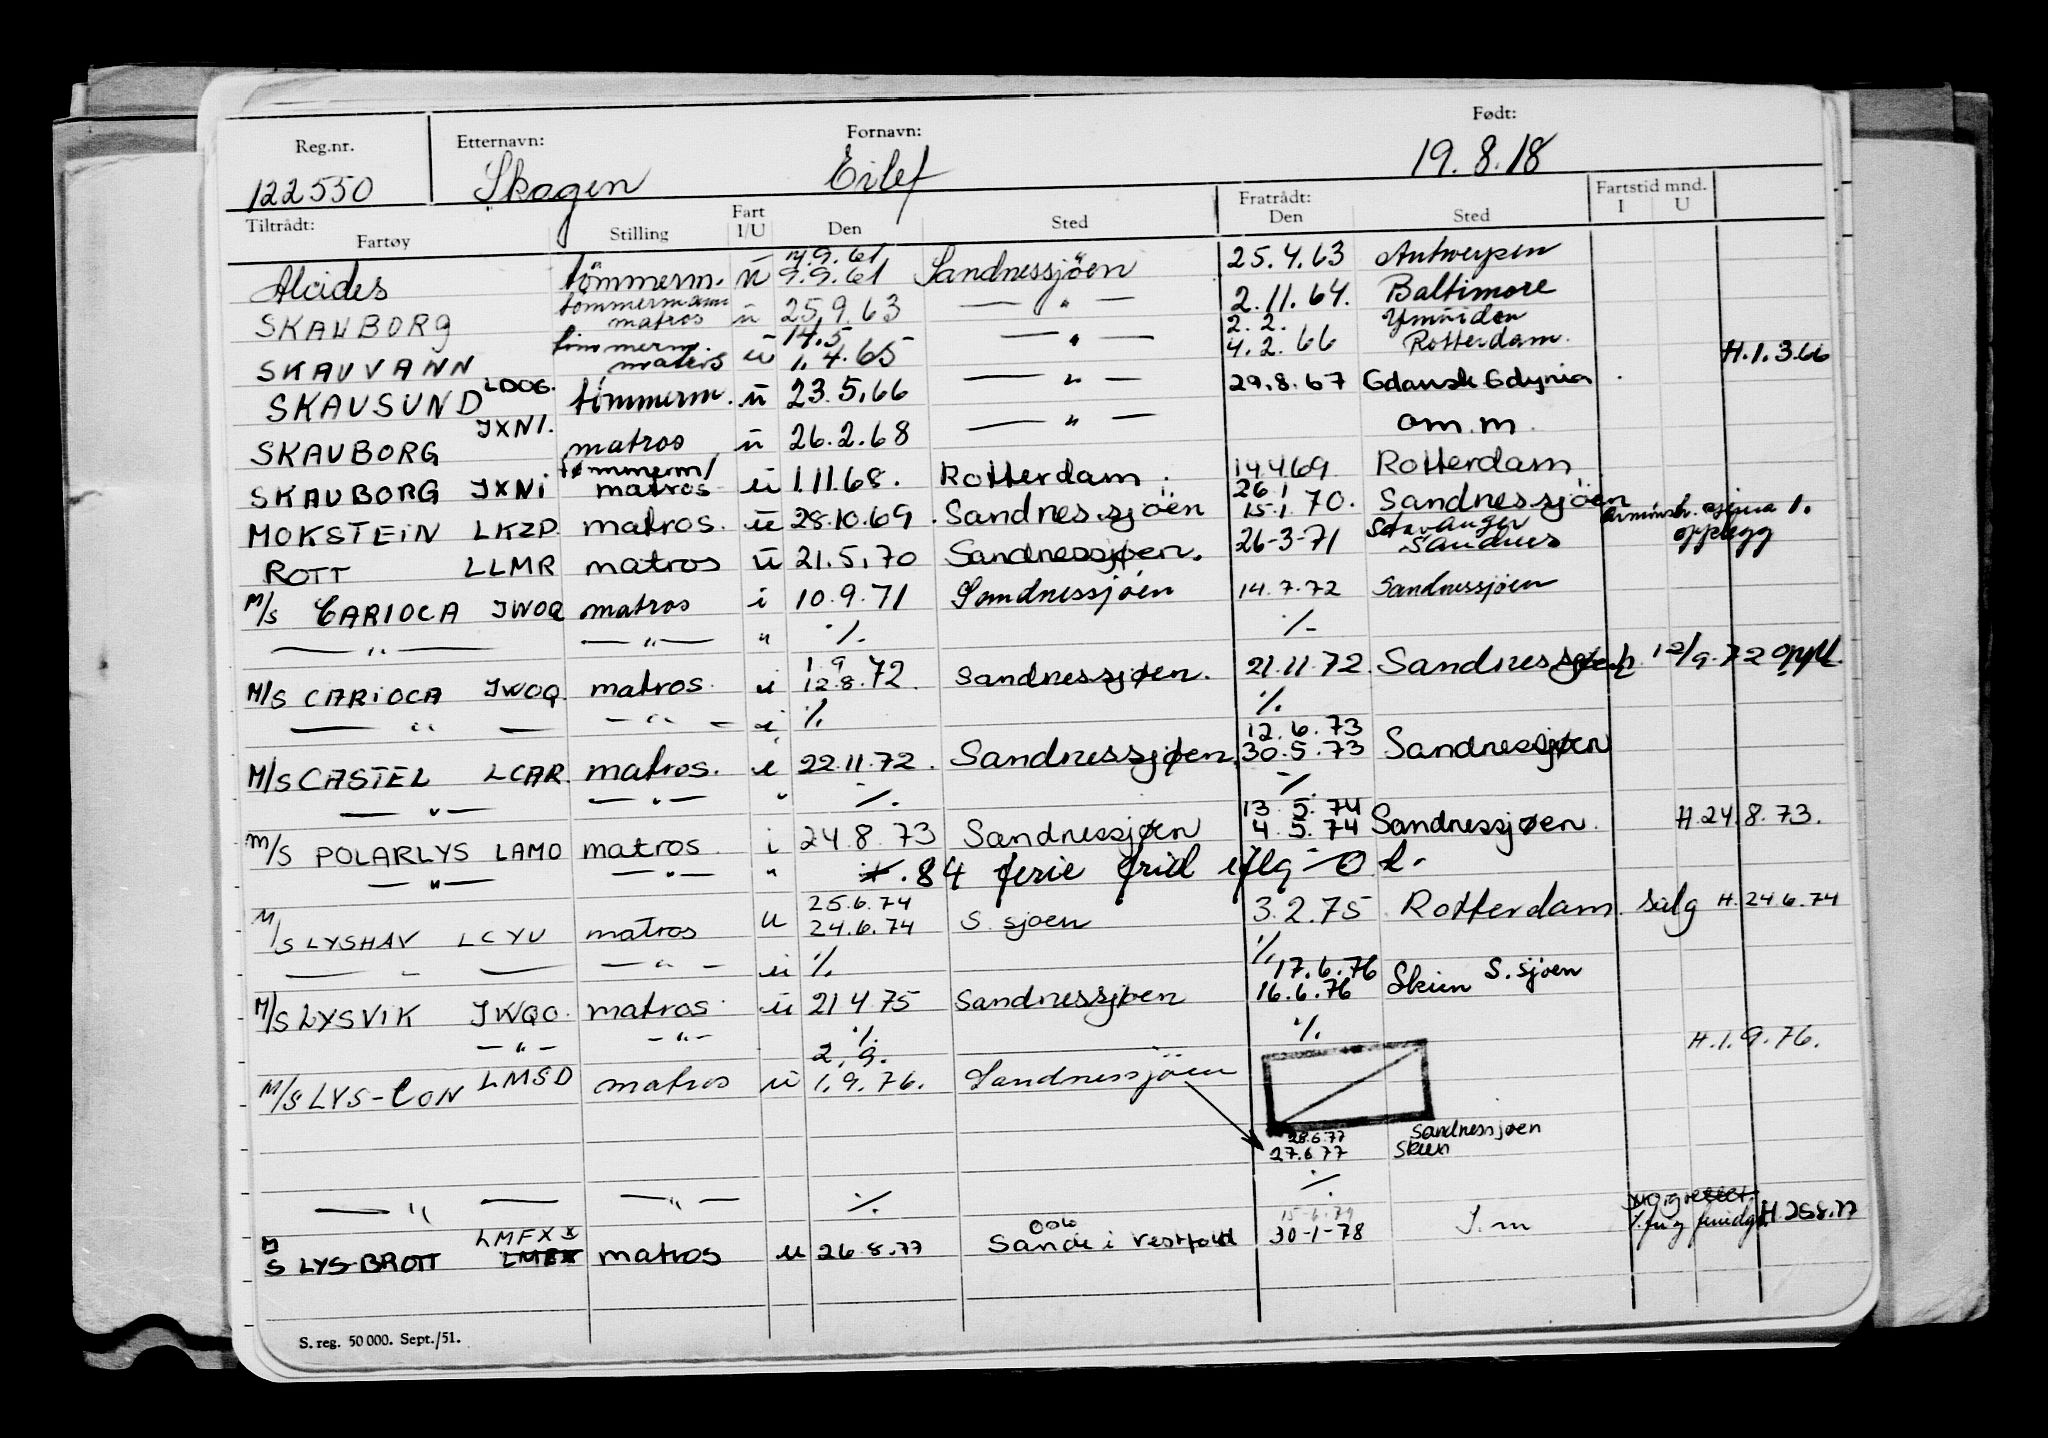 Reg.nr. Etternavn: Fornavn: Født:
122550 Skagen Eilef 19.8.18
Tiltrådt: Fratrådt: Fartstid mnd.
Fartøy Stilling Fart I/U Den Sted Den Sted I U
14.9.61
Alcides tömmerm. ü 9.9.61 Sandnessjöen 25.4.63 Antwerpen
tömmermann
SKAUBORG matros ü 25.9.63 — " — 2.11.64. Baltimore
tömmerm. 14.5 2.2. Ymuiden
SKAUVANN ü 1.4.65 — " — 4.2.66 Rotterdam. H.1.3.66
SKAUSUND LDOG. tömmerm. ü 23.5.66 — " — 29.8.67 Gdansk Gdynia
SKAUBORG JXNI. matros ü 26.2.68 — " — om.m.
tømmerm/
SKAUBORG JXNi matros ü 1.11.68. Rotterdam. 14.4.69 Rotterdam
26.1
MOKSTEIN LKZP matros. ü 28.10.69. Sandnessjöen 15.1.70. Sandnessjöen
Stavanger
ROTT LLMR matros ü 21.5.70 Sandnessjøen. 26-3-71 Sandnes opplegg
M/S CARIOCA JWOQ matros i 10.9.71 Sandnessjöen 14.7.72 Sandnessjöen
— " — — " — " ·/. ·/.
1.9
M/S CARIOCA JWOQ. matros. i 12.8.72. Sandnessjøen. 21.11.72. Sandnessjøen 12/9.72 oppl.
— " — — " — i ·/. ·/.
12.6.73
M/S CASTEL LCAR. matros. i 22.11.72. Sandnessjøen. 30.5.73 Sandnessjøen
— " — — " — " ·/. ·/.
13.5.74
M/S POLARLYS LAMO matros i 24.8.73 Sandnessjøen 4.5.74 Sandnessjøen. H.24.8.73.
— " — — " — " .84 ferie frid iflg
25.6.74
M/S LYSHAV LCYU matros u 24.6.74 S.sjoen 3.2.75 Rotterdam. salg H.24.6.74
— " — — " — ü ·/. ·/.
17.6.76 S.sjoen
M/S LYSVIK JWQO. matros ü 21.4.75 Sandnessjoen 16.6.76 Skien
— " — — " — ·/. ·/.
2.9. H.1.9.76.
M/S LYS-CON LMSD matros ü 1.9.76. Sandnessjöen
28.6.77 Sandnessjøen
27.6.77 Skien
— " — — " — ·/. ·/.
LMFX Oslo 15-6-79
M/S LYS-BROTT matros u 26.8.77 Sande i Vestfold 30-1-78 S.m H.25.8.77
S. reg. 50 000. Sept./51.